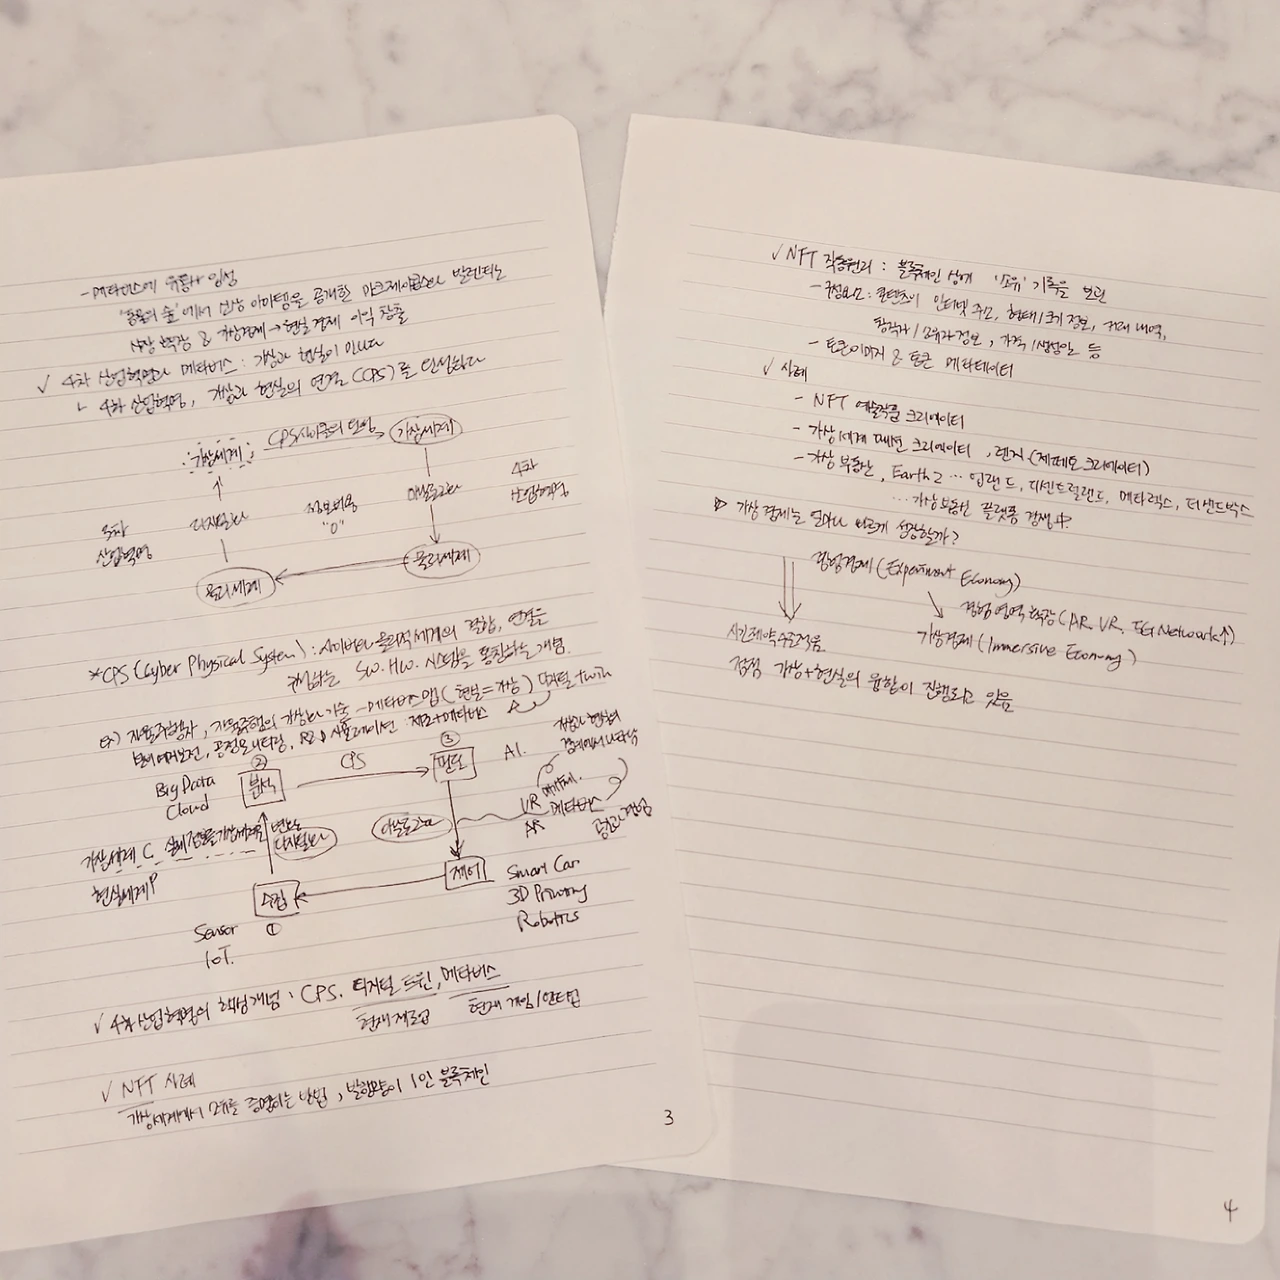 - 메타버스에 유통사 입성
'동물의 숲'에서 신상 아이템을 공개한 마크제이콥스와 발렌티노
시장 확장 & 가상경제 → 현실경제 이익 창출
✓ 4차 산업혁명과 메타버스 : 가상과 현실이 만나다
ㄴ 4차 산업혁명, 가상과 현실의 연결(CPS)를 완성하다
가상세계 CPS사이클의 완성 가상세계
3차 산업혁명 디지털화 정보비용 "0" 아날로그화 4차 산업혁명
물리세계 물리세계
*CPS(Cyber Physical System) : 사이버와 물리적세계의 결합, 연결을
SW. HW. 시스템을 통칭하는 개념.
ex) 자율주행차, 자율주행의 가상화 기술 - 메타버스맵(현실=가상) 디지털 twin
공정모니터링, 시뮬레이션 제조+메타버스
Big Data
Cloud
② 분석
CPS
③ 판단
A.I.
가상과 현실의
경계에서 나타남
가상세계
현실세계
디지털화
아날로그화
VR
AR
메타버스
수집
①
제어
Sensor
IoT.
Smart Car
3D Printing
Robotics
✓ 4차 산업혁명의 핵심개념 : CPS. 디지털 트윈, 메타버스
현재 제조업 현재 게임/엔터업
✓ NFT 사례
가상세계에서 소유를 증명하는 방법, 발행량이 1인 블록체인
3
✓ NFT 작동원리 : 블록체인 상에 '소유' 기록을 보관
- 구성요소 : 콘텐츠의 인터넷 주소, 형태/크기 정보, 거래 내역,
창작자/소유자 정보, 가격/생성일 등
- 토큰이미지 & 토큰 메타데이터
✓ 사례
- NFT 예술작품 크리에이터
- 가상세계 패션 크리에이터, 렌지(제페토 크리에이터)
- 가상 부동산, Earth 2 … 업랜드, 디센트럴랜드, 메타렉스, 더샌드박스
… 가상부동산 플랫폼 경쟁中.
▷ 가상경제는 얼마나 빠르게 성장할까?
경험경제(Experiment Economy)
경험 영역 확장(AR. VR. 5G Network↑)
가상경제(Immersive Economy)
점점 가상+현실의 융합이 진행되고 있음
4